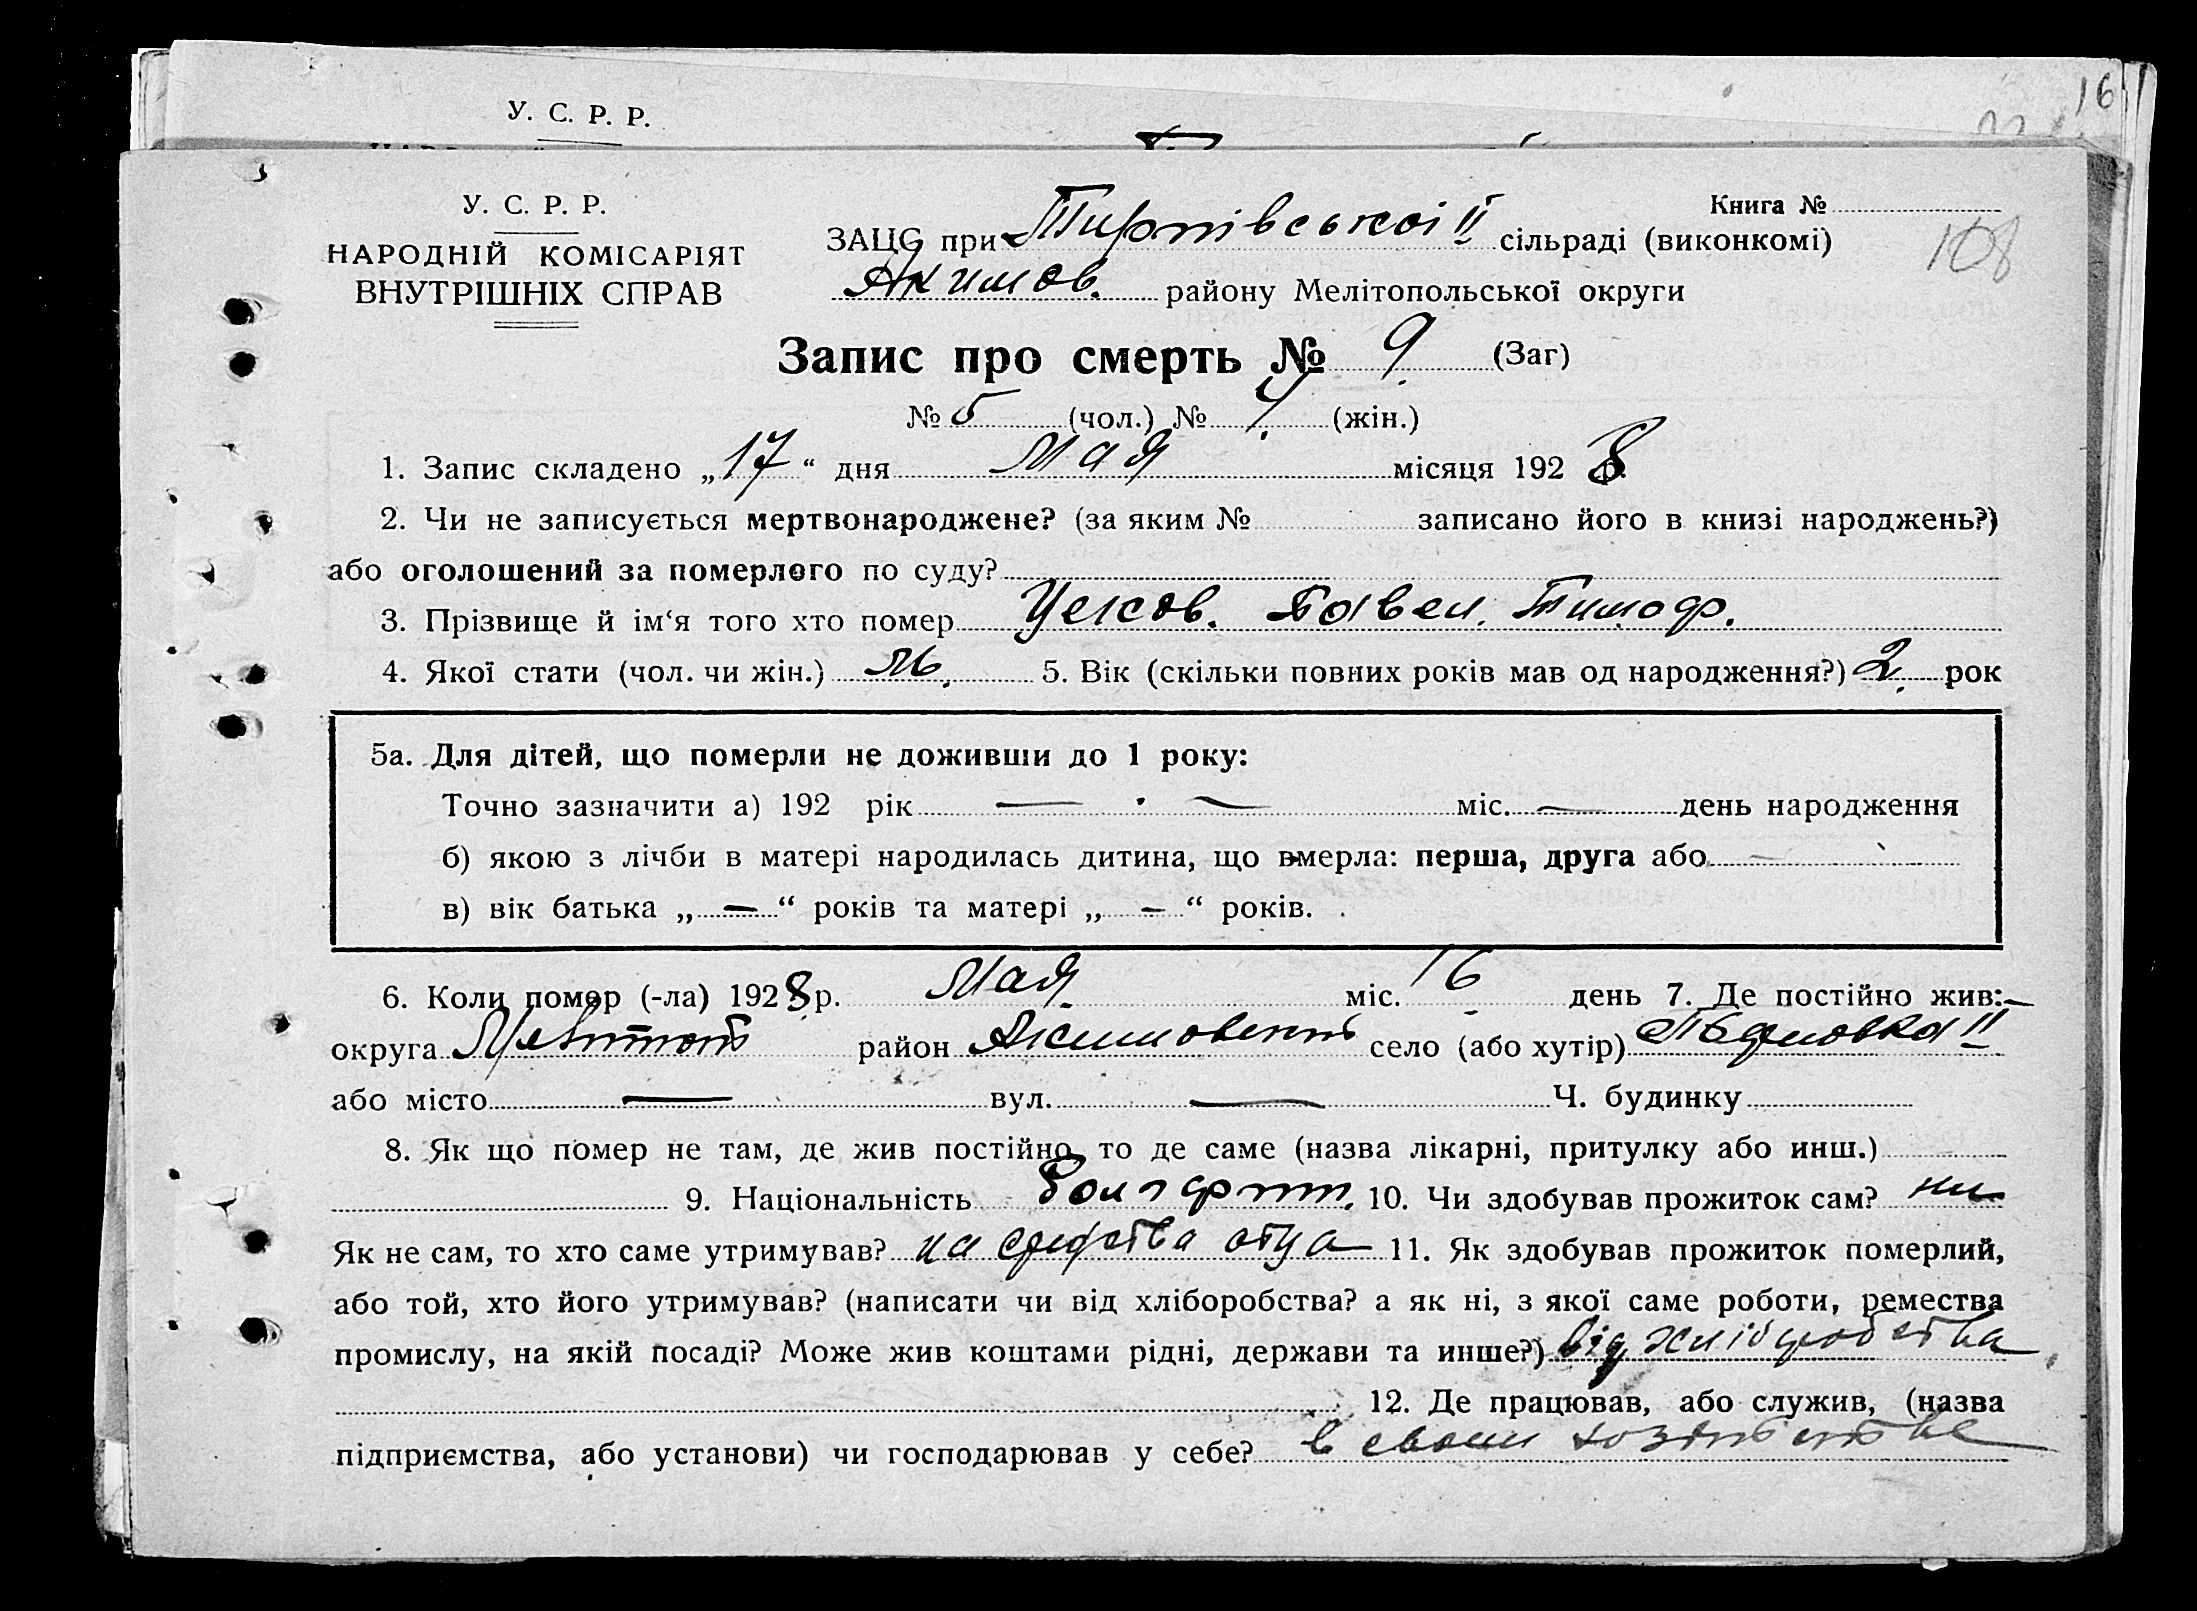 16
У. С. Р. Р.
У. С. Р. Р.
НАРОДНІЙ КОМІСАРІЯТ
ВНУТРІШНІХ СПРАВ
Книга №
108
ЗАЦС при II сільраді (виконкомі)
Акимов. району Мелітопольської округи
Запис про смерть № 9 (Заг)
№ 5 (чол.) № 4 (жін.)
1. Запис складено „17“ дня Мая місяця 1928 р.
2. Чи не записується мертвонароджене? (за яким № записано його в книзі народжень?)
або оголошений за померлого по суду?
3. Прізвище й ім‘я того хто помер Павел. Тимоф.
4. Якої стати (чол. чи жін.) М. 5. Вік (скільки повних років мав од народження?) 2 рок
5а. Для дітей, що померли не доживши до 1 року:
Точно зазначити а) 192 рік — — міс. — день народження
б) якою з лічби в матері народилась дитина, що вмерла: перша, друга або —
в) вік батька „ — “ років та матері „ — “ років.
6. Коли помер (-ла) 1928 р. Мая міс. 16 день 7. Де постійно жив:
округа район село (або хутір) II
або місто — вул. — Ч. будинку
8. Як що помер не там, де жив постійно, то де саме (назва лікарні, притулку або инш.)
9. Національність 10. Чи здобував прожиток сам? ни
Як не сам, то хто саме утримував? на средства отца 11. Як здобував прожиток померлий,
або той, хто його утримував? (написати чи від хліборобства? а як ні, з якої саме роботи, ремества
промислу, на якій посаді? Може жив коштами рідні, держави та инше?) від хліборобства
12. Де працював, або служив, (назва
підприємства, або установи) чи господарював у себе? в своем